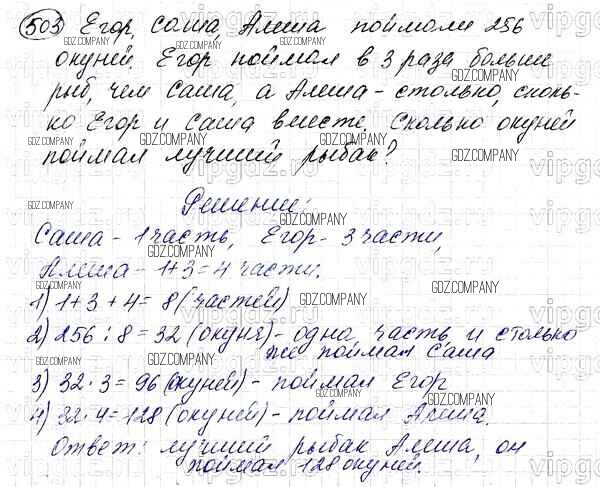 503 Егор, Саша, Алеша поймали 256
окуней. Егор поймал в 3 раза больше
рыб, чем Саша, а Алеша - столько, сколь-
ко Егор и Саша вместе. Сколько окуней
поймал лучший рыбак?
Решение:
Саша - 1 часть, Егор - 3 части,
Алеша - 1+3=4 части.
1) 1+3+4=8 (частей)
2) 256:8=32 (окуня) - одна часть и столько
же поймал Саша
3) 32·3=96 (окуней) - поймал Егор
4) 32·4=128 (окуней) - поймал Алеша.
Ответ: лучший рыбак Алеша, он
поймал 128 окуней.
GDZ.COMPANY
vipgdz.ru